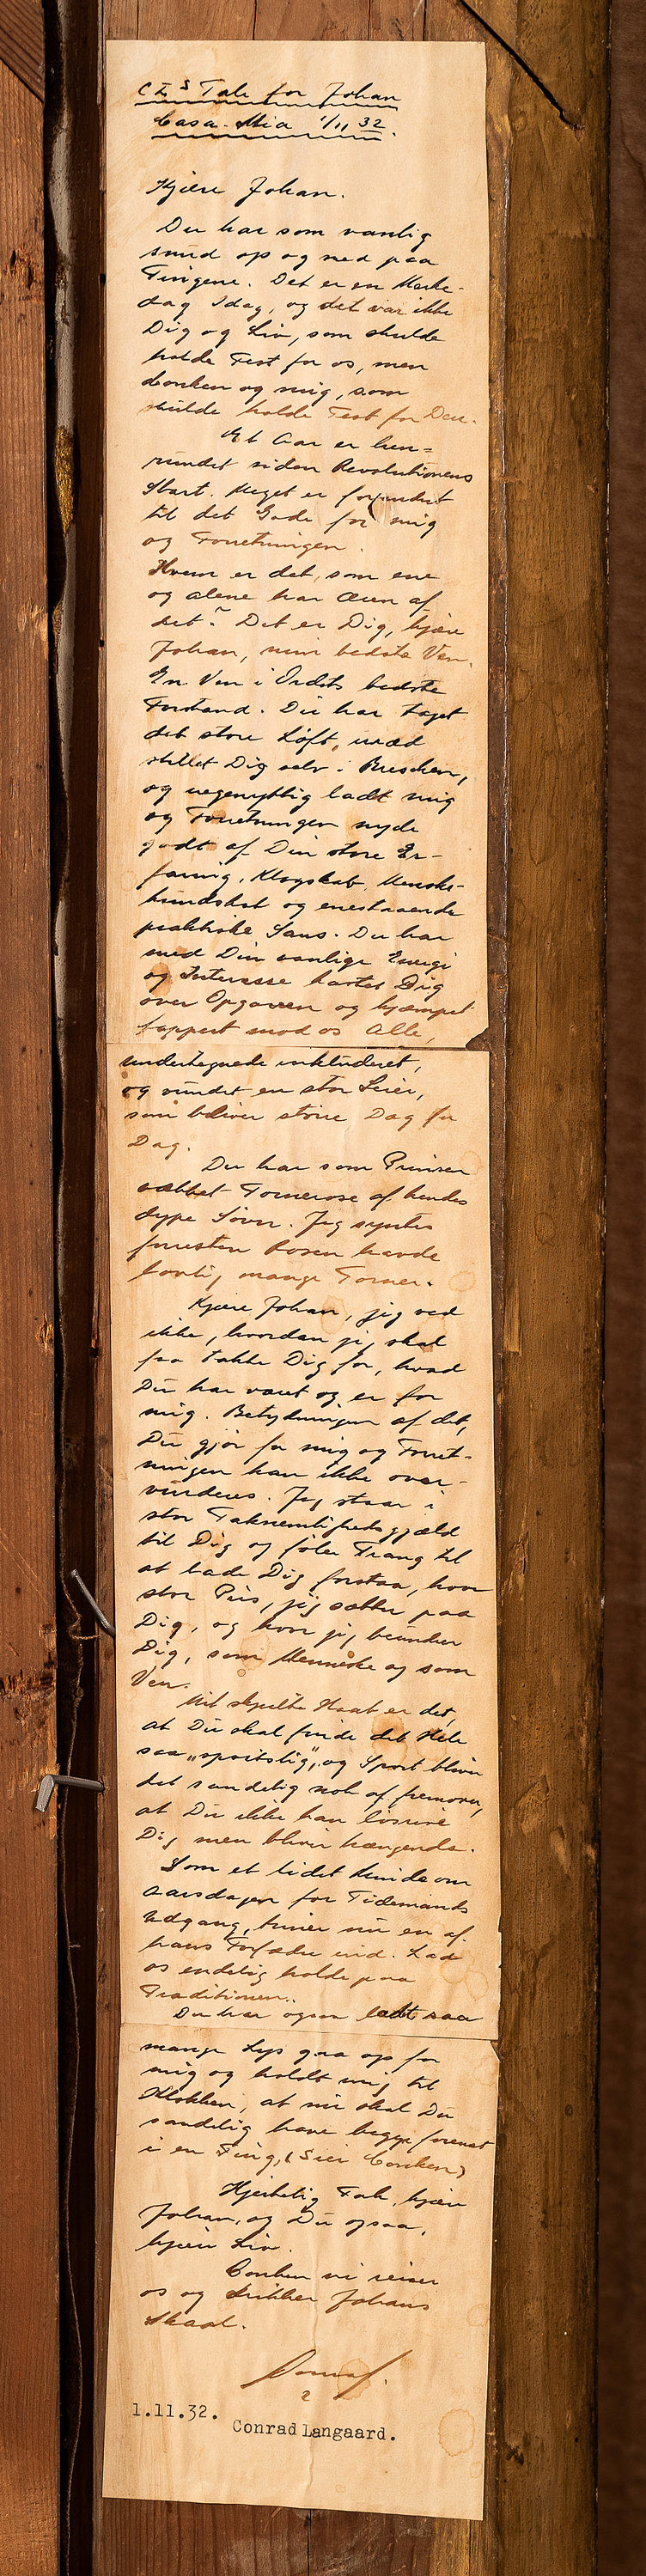 CL's Tale for Johan
Casa Mia 1/11 32.
Kjære Johan.
Du har som vanlig
snud op og ned paa
Tingene. Det er en Merke-
dag Idag, og det var ikke
Dig og Liv, som skulde
holde Fest for os, men
Conken og mig, som
skulde holde Fest for Den.
Et Aar er hen=
rundet siden Revolutionens
Start. Meget er forandret
til det Gode for mig
og Forretningen.
Hvem er det, som ene
og alene har Æren af
det? Det er Dig, kjære
Johan, min bedste Ven.
En Ven i Ordets bedste
Forstand. Du har taget
det store Løft, uræd
stillet Dig selv i Breschen,
og uegennyttig ladt mig
og Forretningen nyde
godt af Din store Er-
faring, Klogskab, Menske-
kundskab og enestaaende
praktiske Sans. Du har
med Din vanlige Energi
og Interesse kastet Dig
over Opgaven og kjæmpet
tappert mod os Alle,
undertegnede inkluderet,
og vundet en stor Seier,
som bliver større Dag for
Dag.
Du har som Prinsen
vækket Tornerose af hendes
dype Søvn. Jeg syntes
forresten Rosen havde
lovlig mange Torner.
Kjære Johan, jeg ved
ikke, hvordan jeg skal
faa takke Dig for, hvad
Du har været og er for
mig. Betydningen af det,
Du gjør for mig og Forret-
ningen kan ikke over-
vurderes. Jeg staar i
stor Taknemlighedsgjæld
til Dig og føler Trang til
at lade Dig forstaa, hvor
stor Pris, jeg sætter paa
Dig, og hvor jeg beundrer
Dig, som Menneske og som
Ven.
Mit stille Haab er det,
at Du skal finde det Hele
saa „sportslig", og Sport bliver
det sandelig nok af fremover,
at Du ikke kan løsrive
Dig men bliver hængende.
Som et lidet Minde om
Aarsdagen for Tidemands
Udgang, triner nu en af
hans Forfædre ind. Lad
os endelig holde paa
Traditionen.
Du har ogsaa ladt saa
mange Lys gaa op for
mig og holdt mig til
Klokken, at nu skal Du
sandelig have begge forenet
i en Ting, (Sier Conken)
Hjertelig Tak, kjære
Johan, og Du ogsaa,
kjære Liv.
Conken vi reiser
os og drikker Johans
Skaal.
1.11.32.
Conrad Langaard.